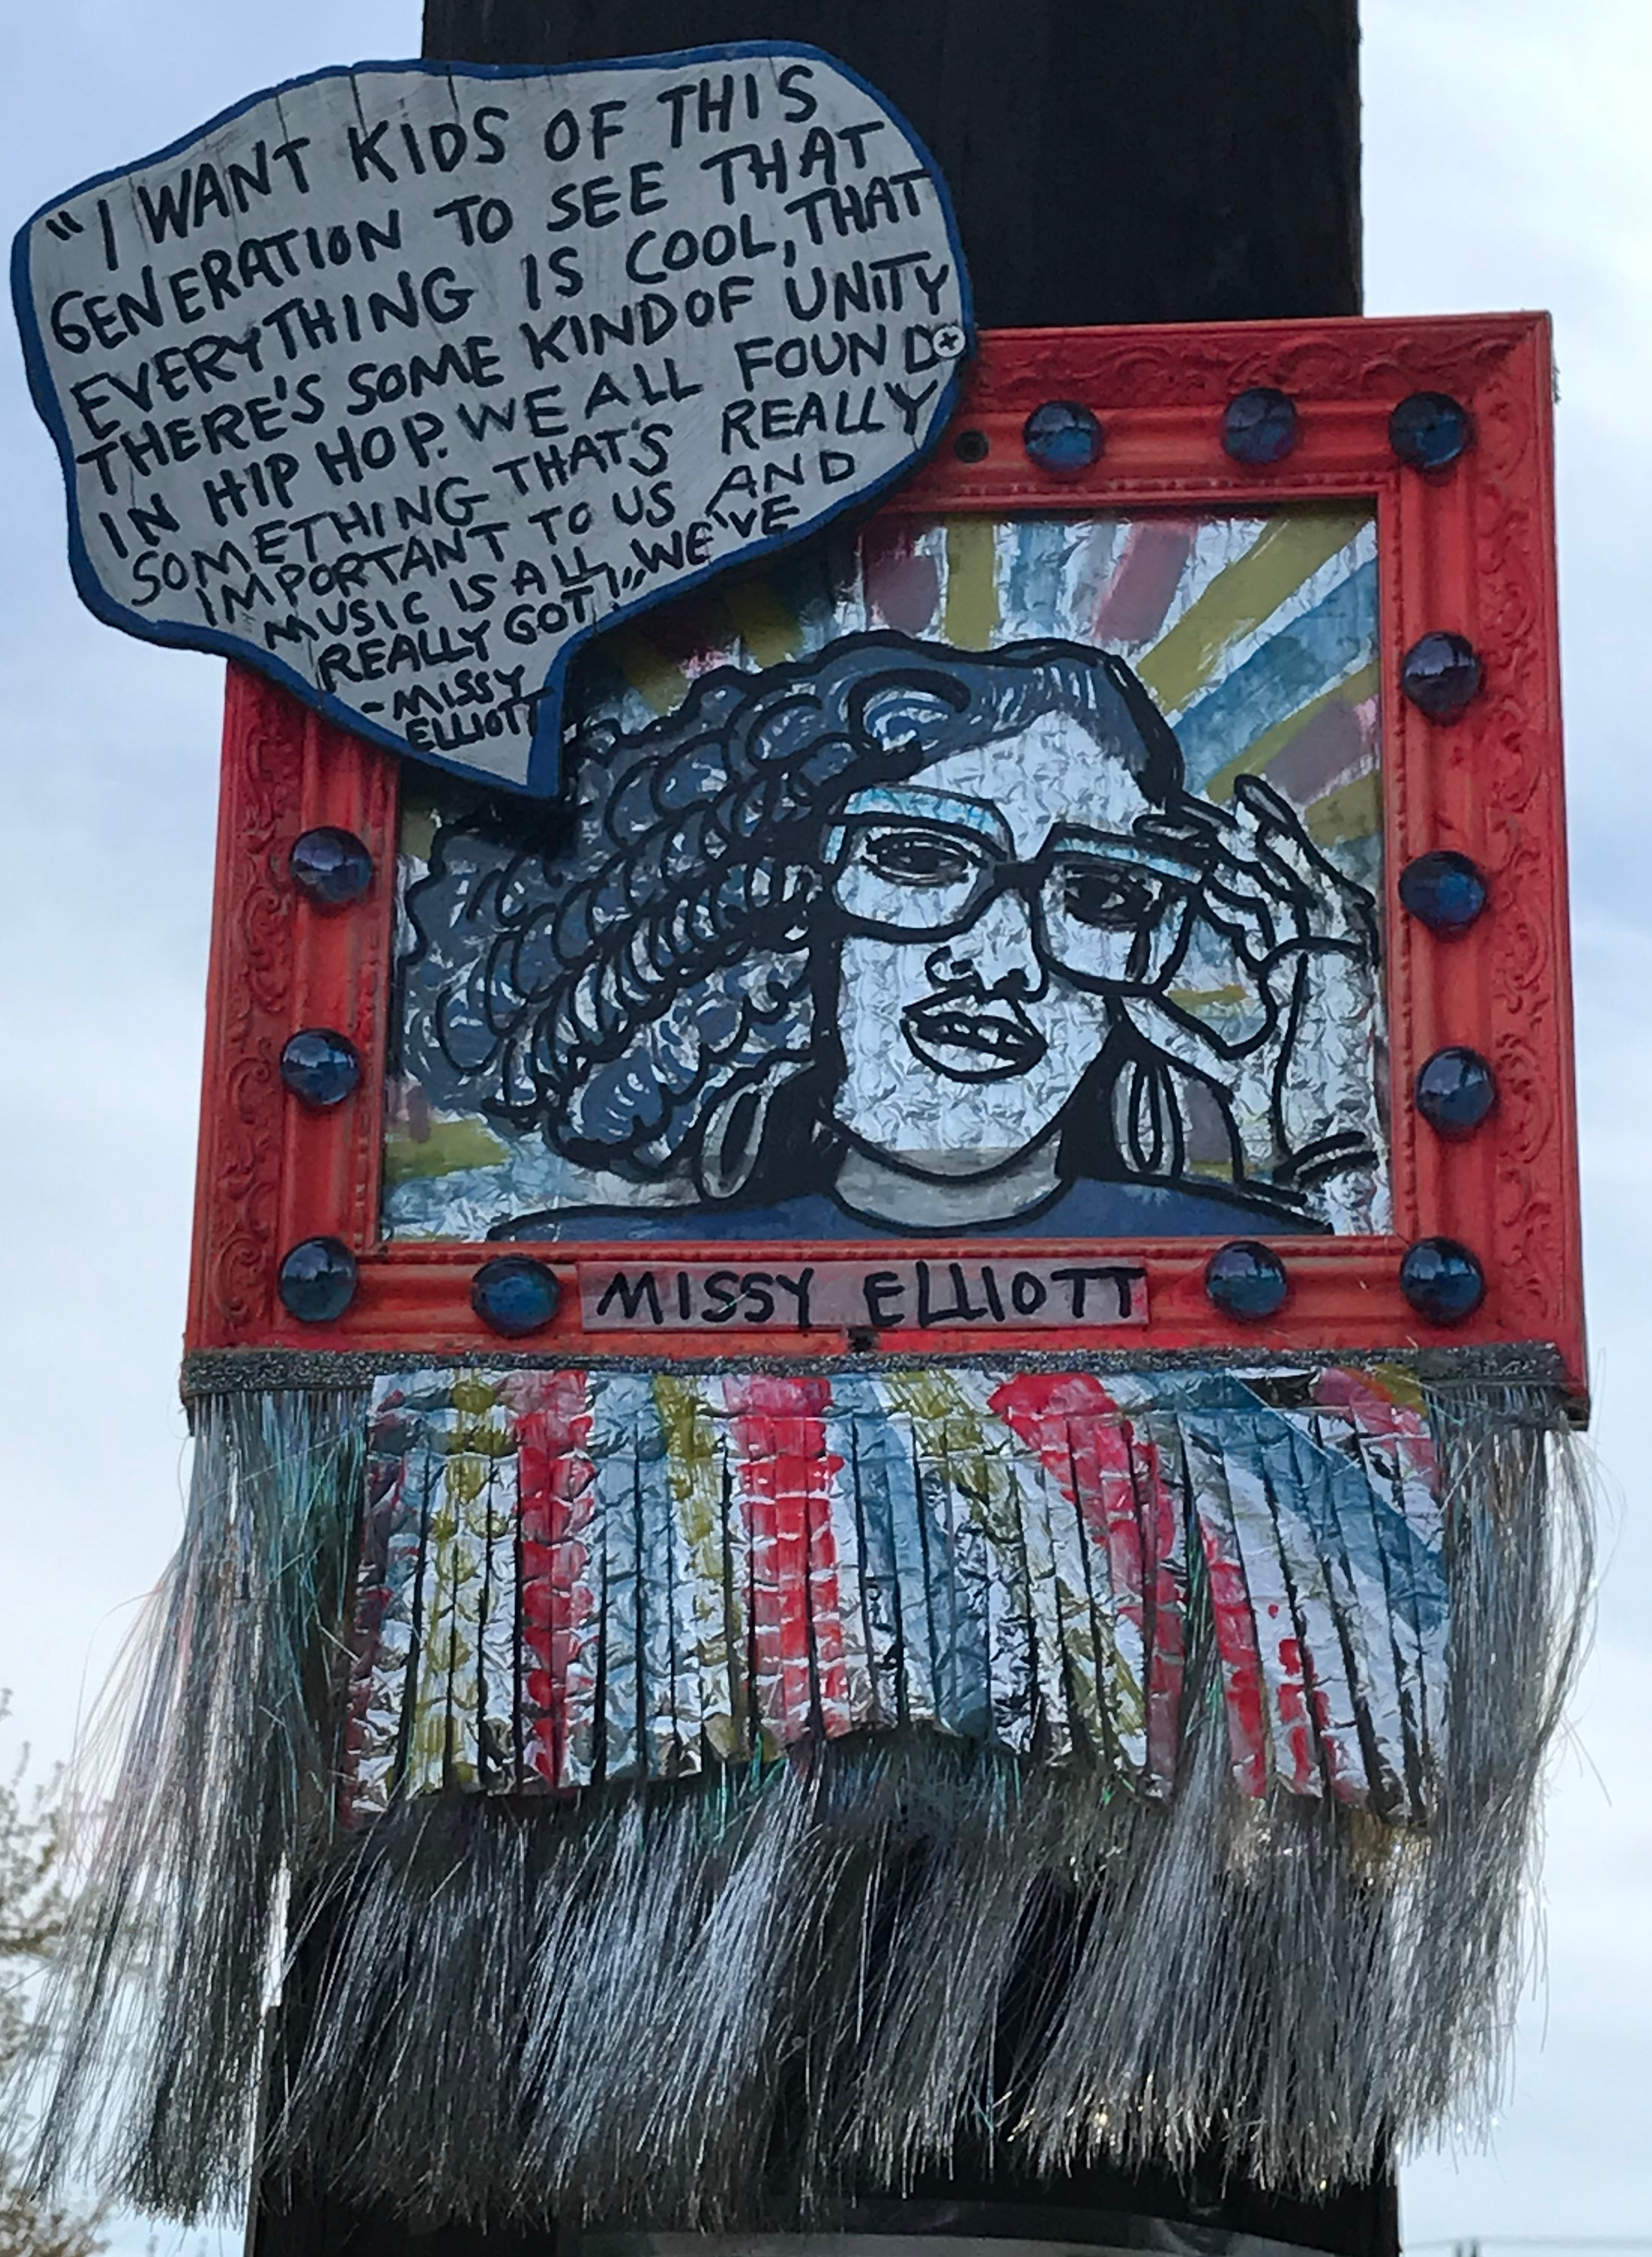 "I WANT KIDS OF THIS
GENERATION TO SEE THAT
EVERYTHING IS COOL, THAT
THERE'S SOME KIND OF UNITY
IN HIP HOP. WE ALL FOUND
SOMETHING THAT'S REALLY
IMPORTANT TO US AND
MUSIC IS ALL WE'VE
REALLY GOT!"
~MISSY
ELLIOTT
MISSY ELLIOTT